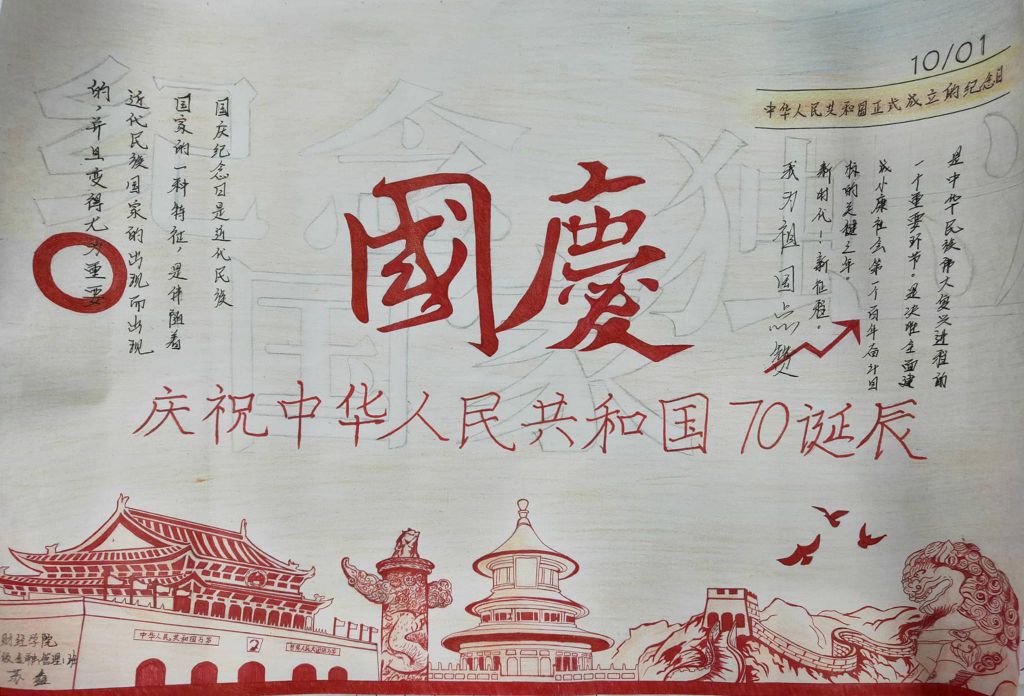 10/01
中华人民共和国正式成立的纪念日
國慶
庆祝中华人民共和国70诞辰
国庆纪念日是近代民族
国家的一种特征，是伴随着
近代民族国家的出现而出现
的，并且变得尤为重要
是中华民族伟大复兴进程的
一个重要环节。是决胜全面建
成小康社会第一个百年奋斗目
标的关键之年。
新时代！新征程。
我为祖国点赞
纪念独立
国家
中华人民共和国万岁
财经学院